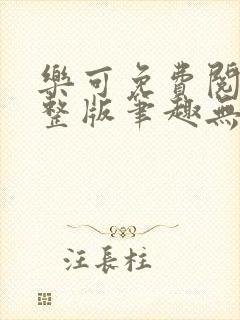 樂可免費閱
整版筆趣無
汪長柱